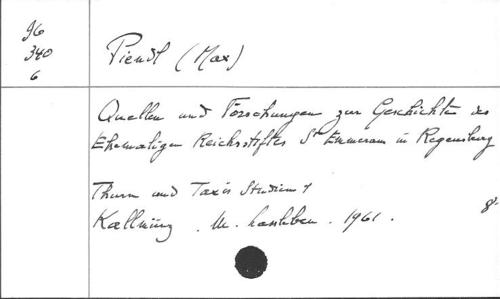 96
340
6
Piendl (Max)
Quellen und Forschungen zur Geschichte des
Ehemaligen Reichsstiftes St Emmeram in Regensburg
Thurn und Taxis Studien 1
Kallmünz . M. Lassleben . 1961 .
8°